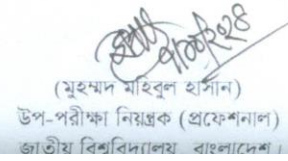 (মুহম্মদ মহিবুল হাসান)
উপ-পরীক্ষা নিয়ন্ত্রক (প্রফেশনাল)
জাতীয় বিশ্ববিদ্যালয়, বাংলাদেশ।